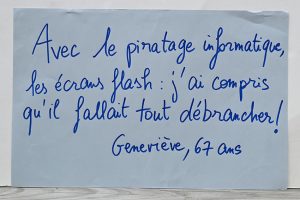 Avec le piratage informatique,
les écrans flash : j'ai compris
qu'il fallait tout débrancher!
Geneviève, 67 ans